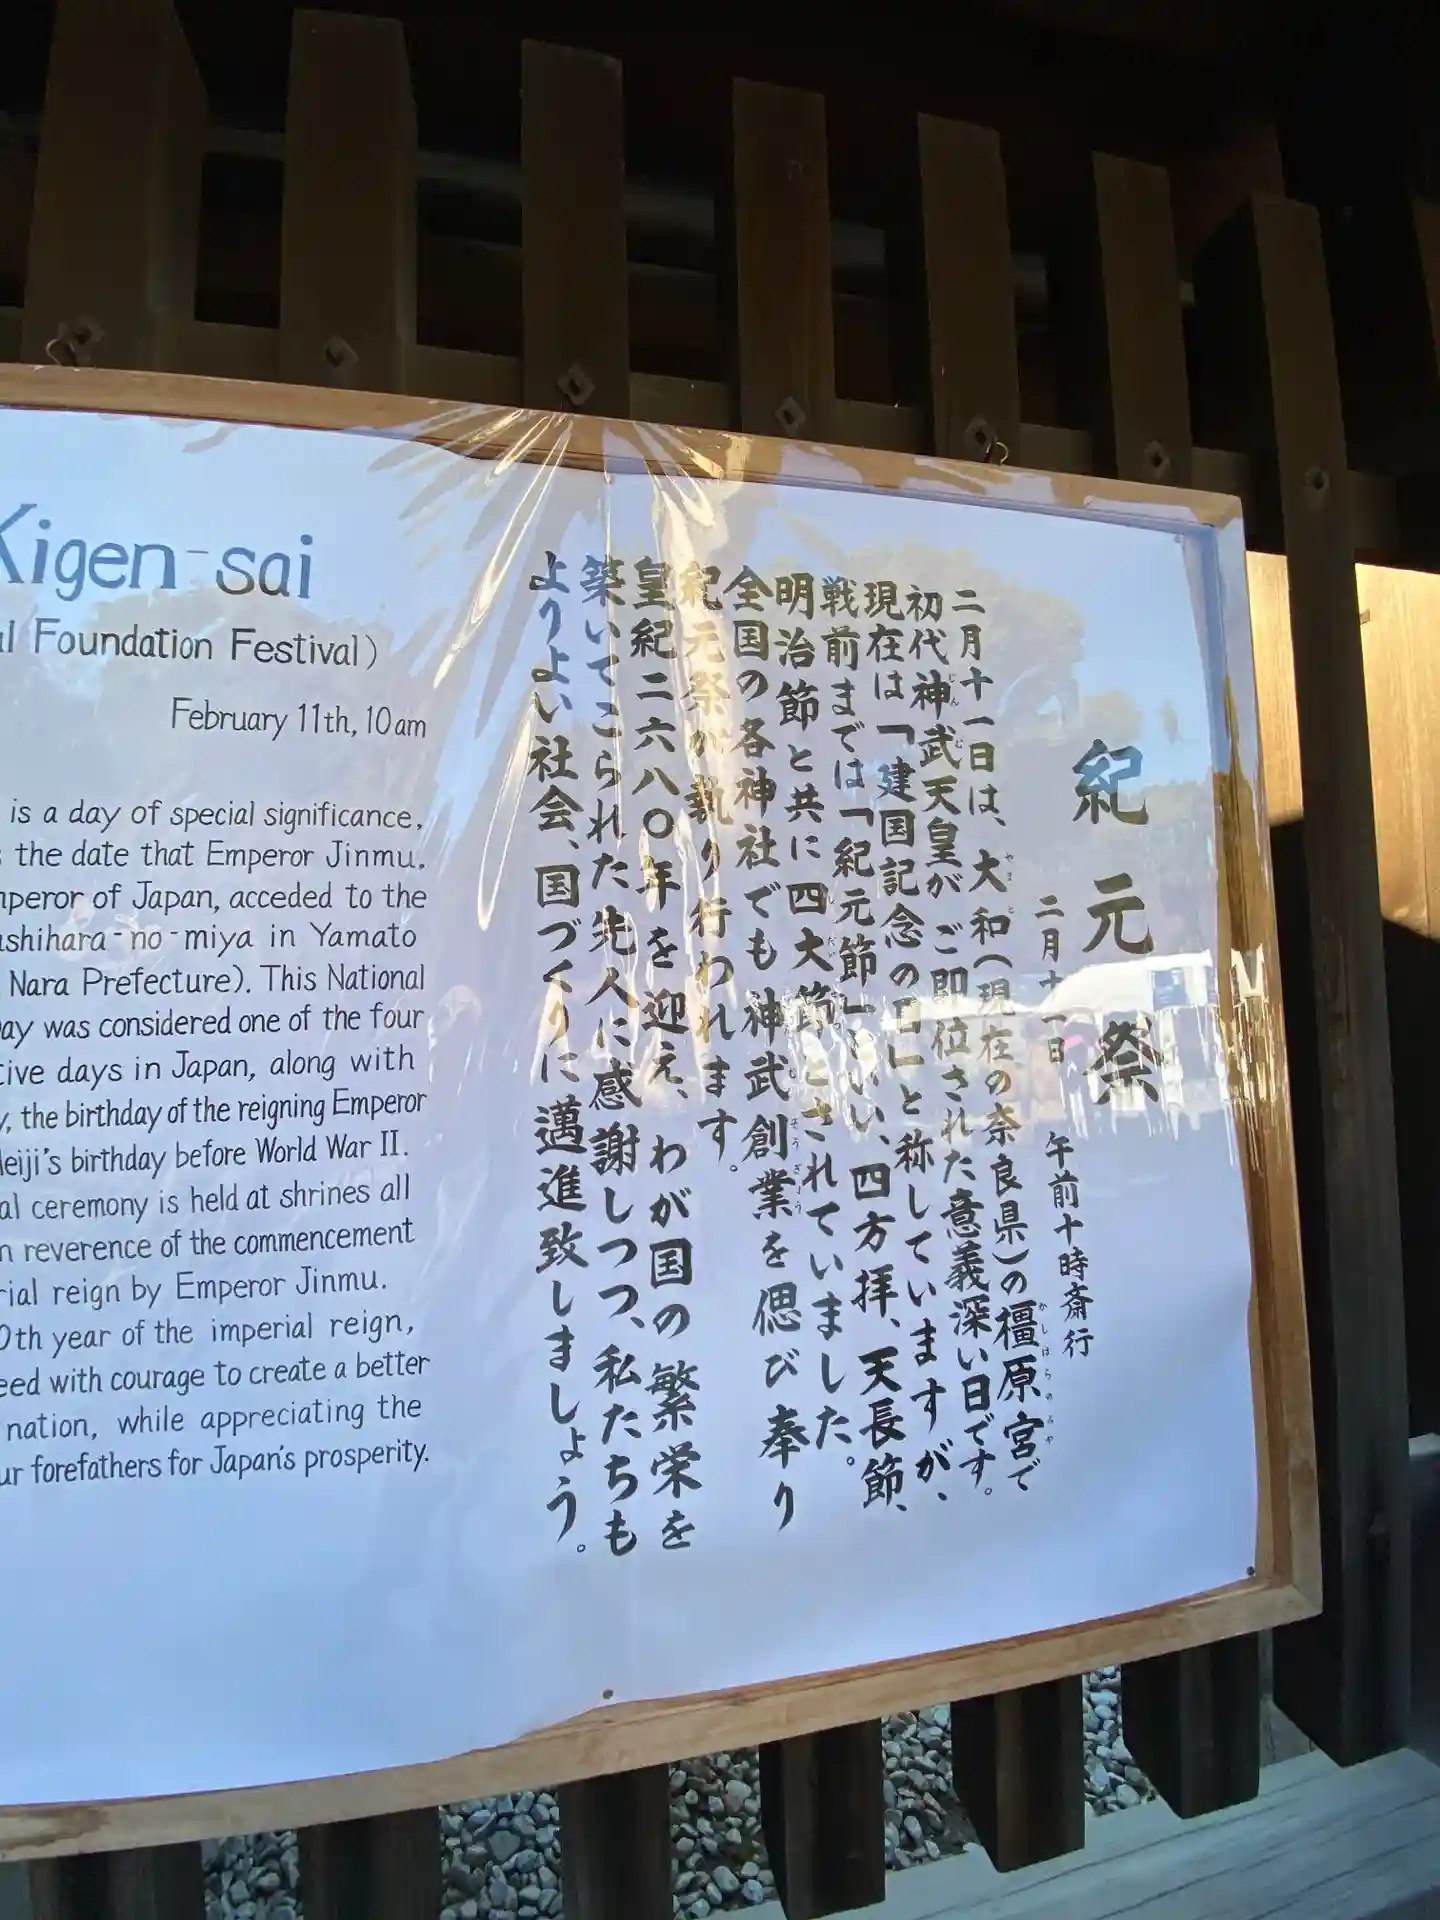 Kigen-sai
Foundation Festival)
February 11th, 10am
is a day of special significance,
the date that Emperor Jinmu,
of Japan, acceded to the
-no-miya in Yamato
Nara Prefecture). This National
was considered one of the four
days in Japan, along with
the birthday of the reigning Emperor
birthday before World War II.
ceremony is held at shrines all
reverence of the commencement
reign by Emperor Jinmu.
0th year of the imperial reign,
with courage to create a better
nation, while appreciating the
forefathers for Japan's prosperity.
紀元祭
二月十一日 午前十時斎行
二月十一日は、大和(現在の奈良県)の橿原宮で
初代神武天皇がご即位された意義深い日です。
現在は「建国記念の日」と称していますが、
戦前までは「紀元節」といい、四方拝、天長節、
明治節と共に四大節とされていました。
全国の各神社でも神武創業を偲び奉り
紀元祭が執り行われます。
皇紀二六八〇年を迎え、わが国の繁栄を
築いてこられた先人に感謝しつつ、私たちも
よりよい社会、国づくりに邁進致しましょう。